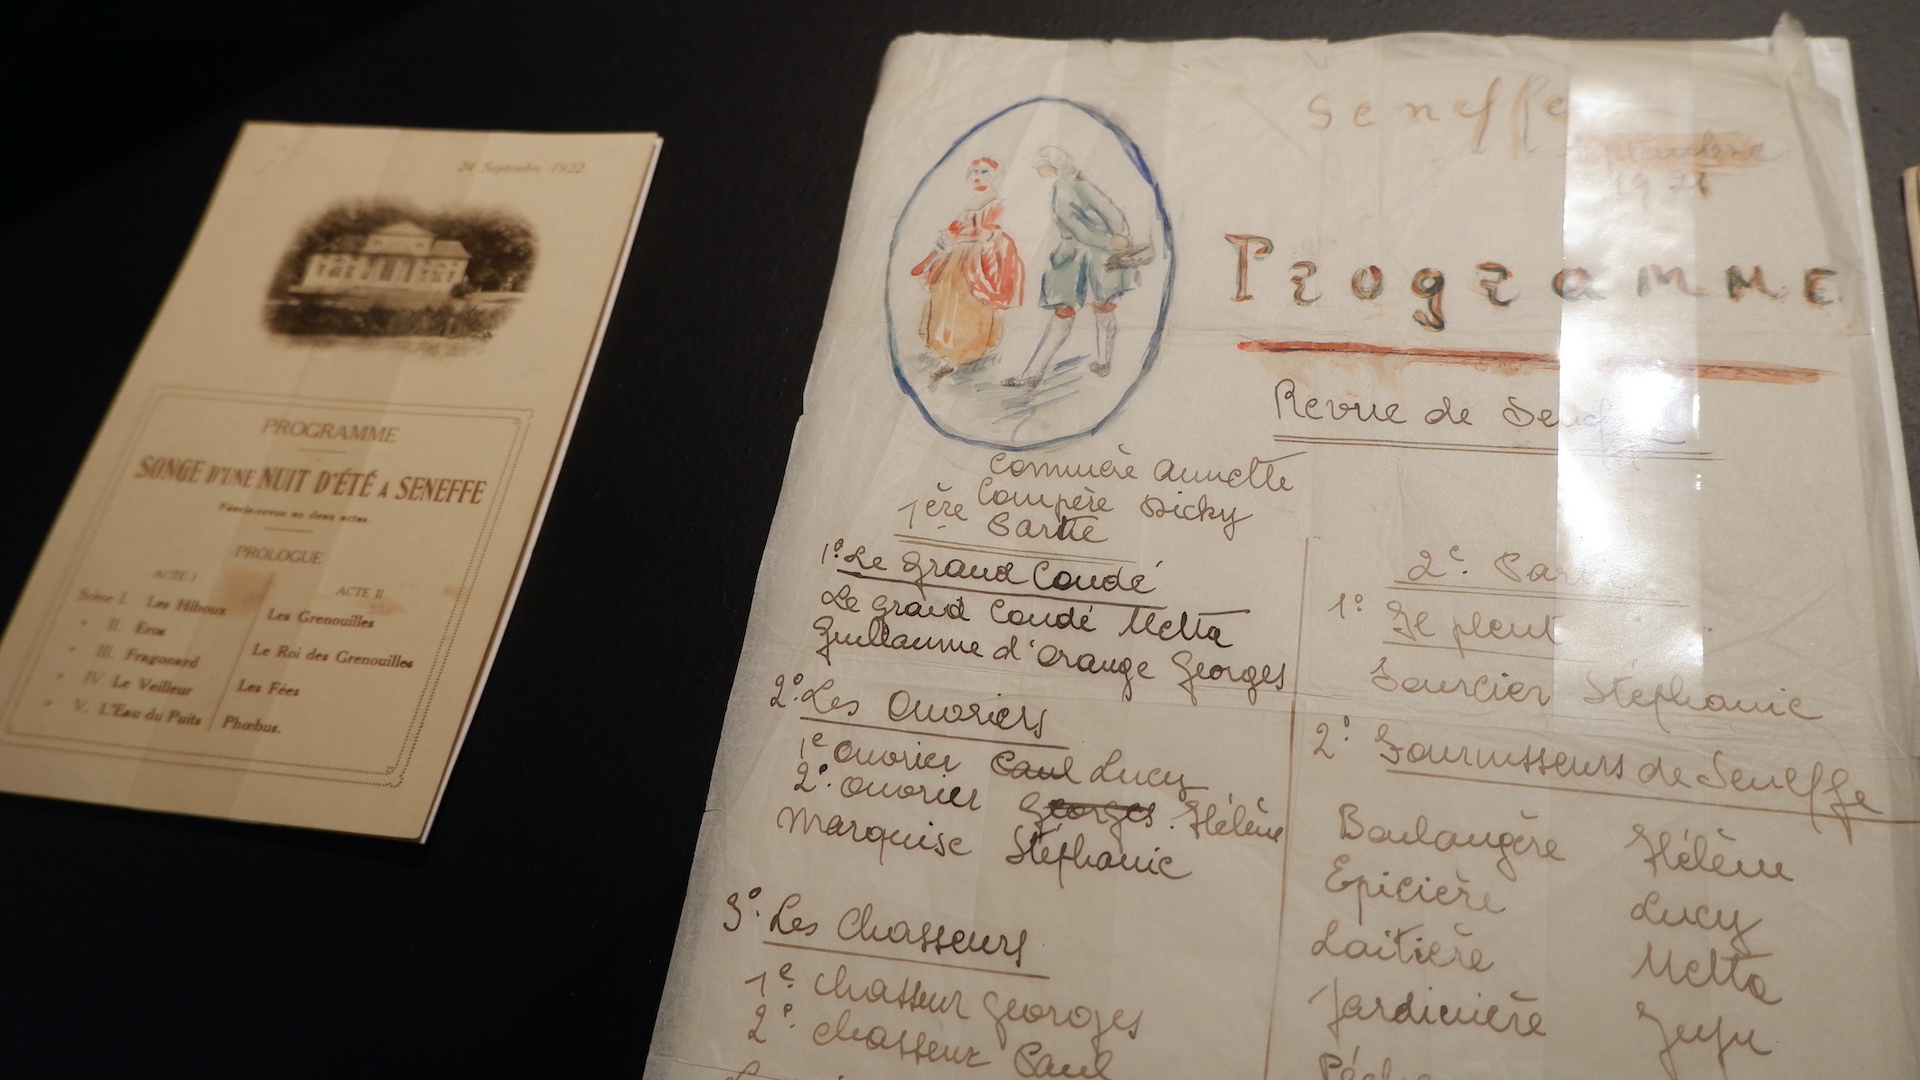 24 Septembre 1922
PROGRAMME
SONGE D'UNE NUIT D'ÉTÉ A SENEFFE
Féerie-revue en deux actes.
PROLOGUE
ACTE I
Scène I. Les Hiboux
» II. Eros
» III. Fragonard
» IV. Le Veilleur
» V. L'Eau du Puits
ACTE II
Les Grenouilles
Le Roi des Grenouilles
Les Fées
Phœbus.
Seneffe
Programme
Revue de Seneffe
Commère Annette
Compère Dicky
1ère Partie
1° Le Grand Condé
Le Grand Condé Metta
Guillaume d'Orange Georges
2° Les Ouvriers
1e Ouvrier Paul Lucy
2e Ouvrier Georges. Hélène
Marquise Stéphanie
3° Les Chasseurs
1e Chasseur Georges
2e Chasseur Paul
2e Par
1° Il pleut
Sourcier Stéphanie
2° Fournisseurs de Seneffe
Boulangère Hélène
Epicière Lucy
Laitière Metta
Jardinière Juju